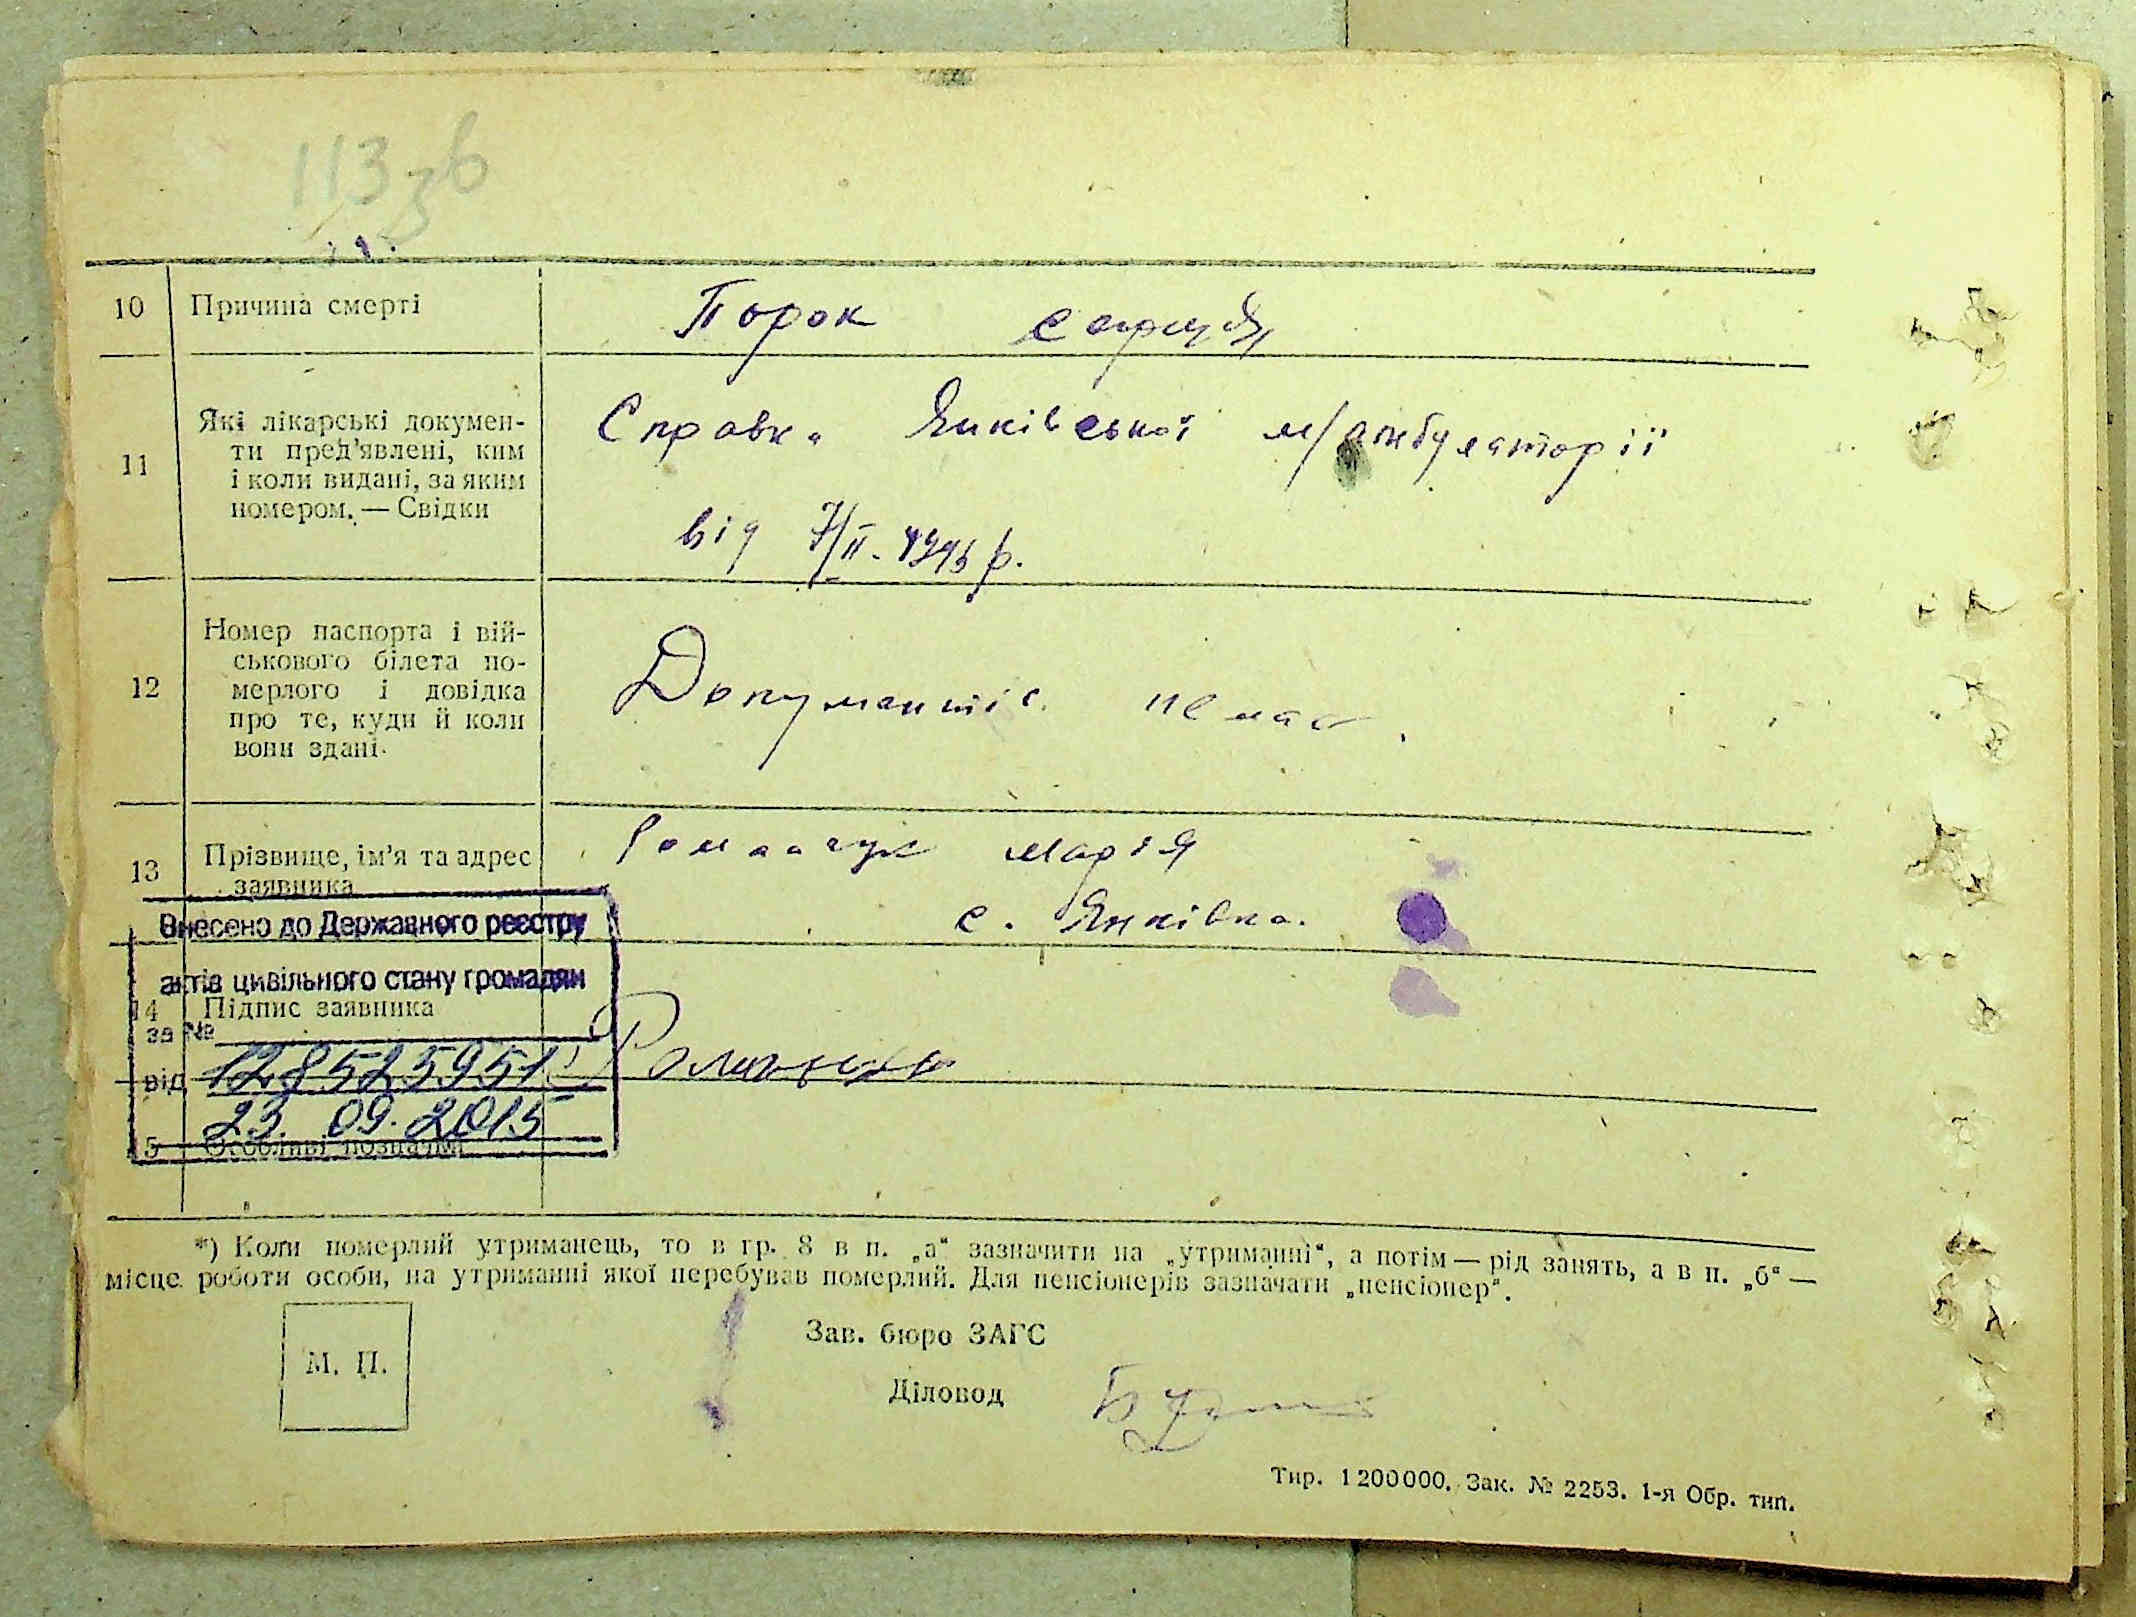 113 зв
10 Причина смерті Порок серця
11 Які лікарські докумен-
ти пред'явлені, ким
і коли видані, за яким
номером. — Свідки
Справка Янківської м/амбулаторії
від 7/II-1946 р.
12 Номер паспорта і вій-
ськового білета по-
мерлого і довідка
про те, куди й коли
вони здані.
Документів немає.
13 Прізвище, ім'я та адрес
заявника
Романчук Марія
с. Янківка.
Внесено до Державного реєстру
актів цивільного стану громадян
14 Підпис заявника
за №
від 12852595
23.09.2015
15 Особливі позначки
*) Коли померлий утриманець, то в гр. 8 в п. „а“ зазначити на „утриманні“, а потім — рід занять, а в п. „б“ —
місце роботи особи, на утриманні якої перебував померлий. Для пенсіонерів зазначати „пенсіонер“.
М. П.
Зав. бюро ЗАГС
Діловод
Тир. 1 200 000. Зак. № 2253. 1-я Обр. тип.